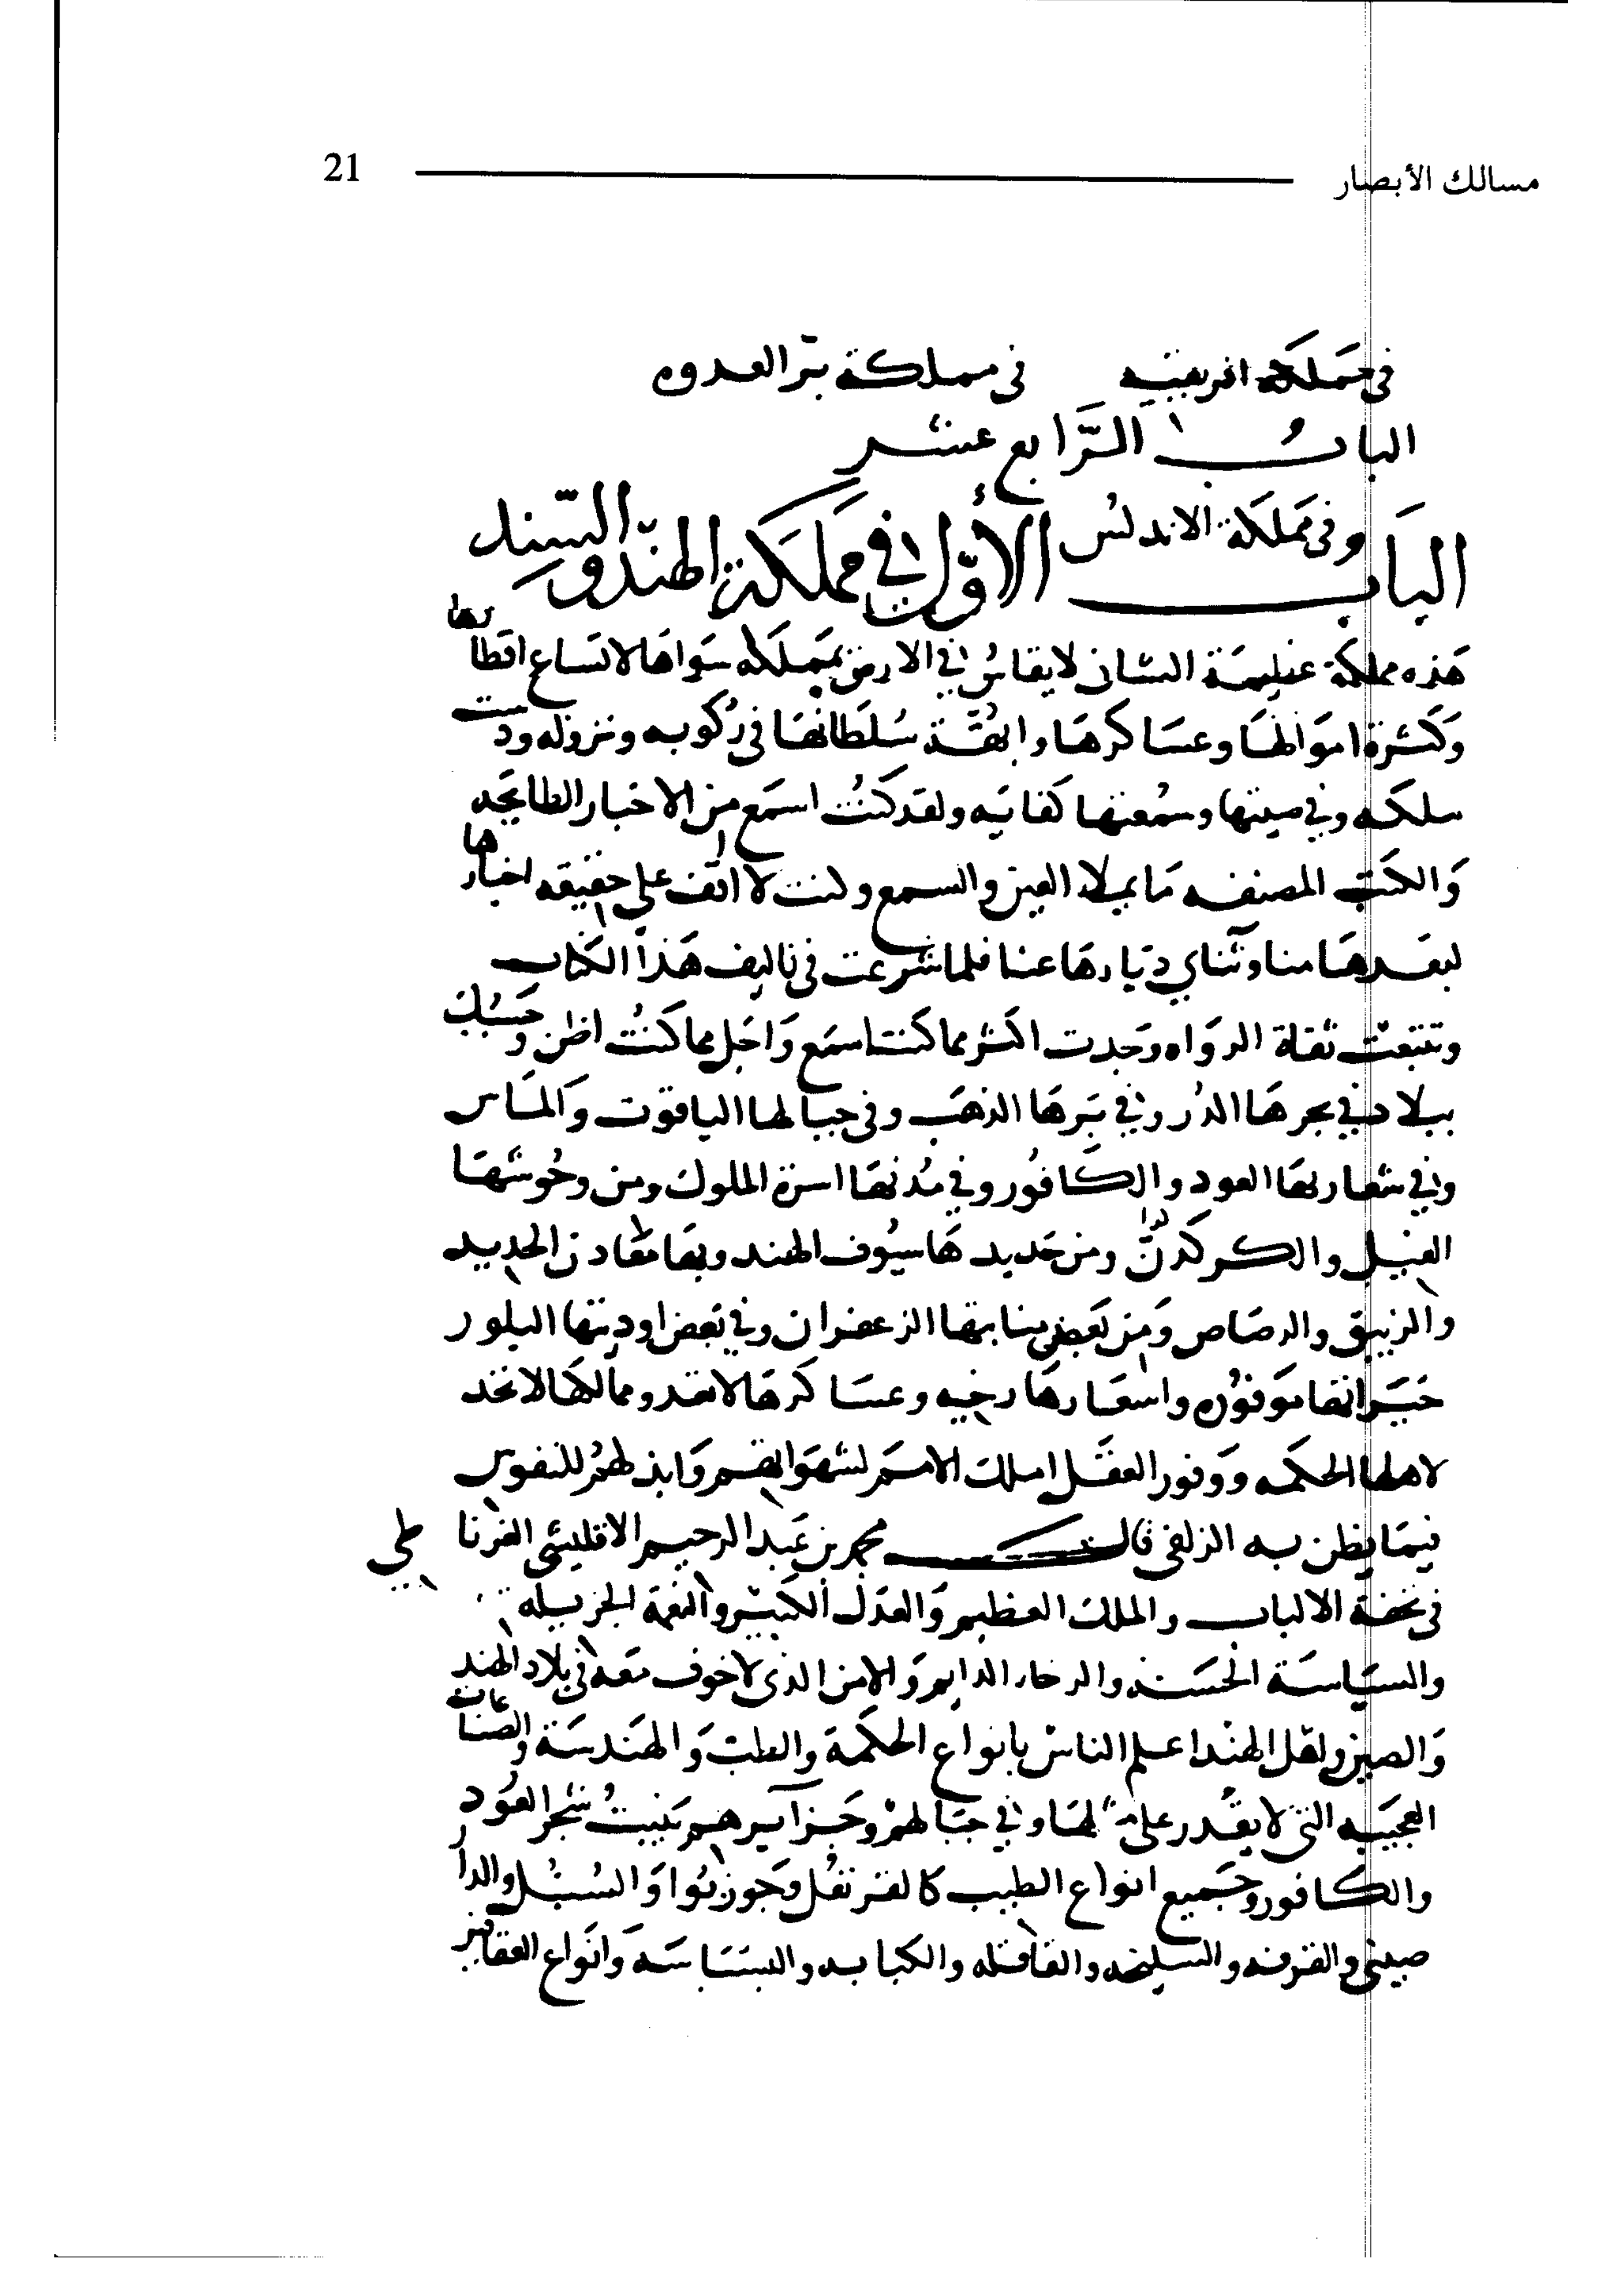 مسالك الأبصار 21
في مملكة افريقيه في مملكة بر العدوه
الباب الرابع عشر
وفي مملكة الاندلس
الباب الأول في مملكة الهند والسند
هذه مملكة عظيمة الشان لا يقاس في الارض بمملكه سواها لاتساع اقطارها
وكثرة اموالها وعساكرها وابهة سلطانها في ركوبه ونزوله ودست
سلكه وفي صيتها وسمعتها كفايه ولقد كنت اسمع من الاخبار الطايحه
والكتب المصنفه ما يملا العين والسمع وكنت لا اقف على حقيقه اخبارها
لبعدها منا وتناي ديارها عنا فلما شرعت في تاليف هذا الكتاب
وتتبعت ثقاة الرواه وجدت اكثر مما كنت اسمع واجل مما كنت اظن وحسبك
ببلاد في بحرها الدر وفي برها الذهب وفي جبالها الياقوت والماس
وفي شعاربها العود والكافور وفي مدنها اسرة الملوك ومن وحوشها
الفيل والكركدن ومن حديدها سيوف الهند وبها معادن الحديد
والزيبق والرصاص ومن بعض منابتها الزعفران وفي بعض اوديتها البلور
خيراتها موفوره واسعارها رخيه وعساكرها لا تعد وممالكها لا تحد
لاهلها الحكمه ووفور العقل املك الامم لشهواتهم وابذلهم للنفوس
فيما يظن به الزلفى قال محمد بن عبد الرحيم الاقليشي الغرناطي
في تحفة الالباب والملك العظيم والعدل الكثير والنعمة الجزيله
والسياسة الحسنه والرخاء الدايم والامن الذي لا خوف معه في بلاد الهند
والصين واهل الهند اعلم الناس بانواع الحكمة والطب والهندسة والصناعات
العجيبه التي لا يقدر على مثلها وفي جبالهم وجزايرهم ينبت شجر العود
والكافور وجميع انواع الطيب كالقرنفل وجوزبوا والسنبل والدار
صيني والقرفه والسليخه والقاقله والكبابه والبسباسه وانواع العقاقير